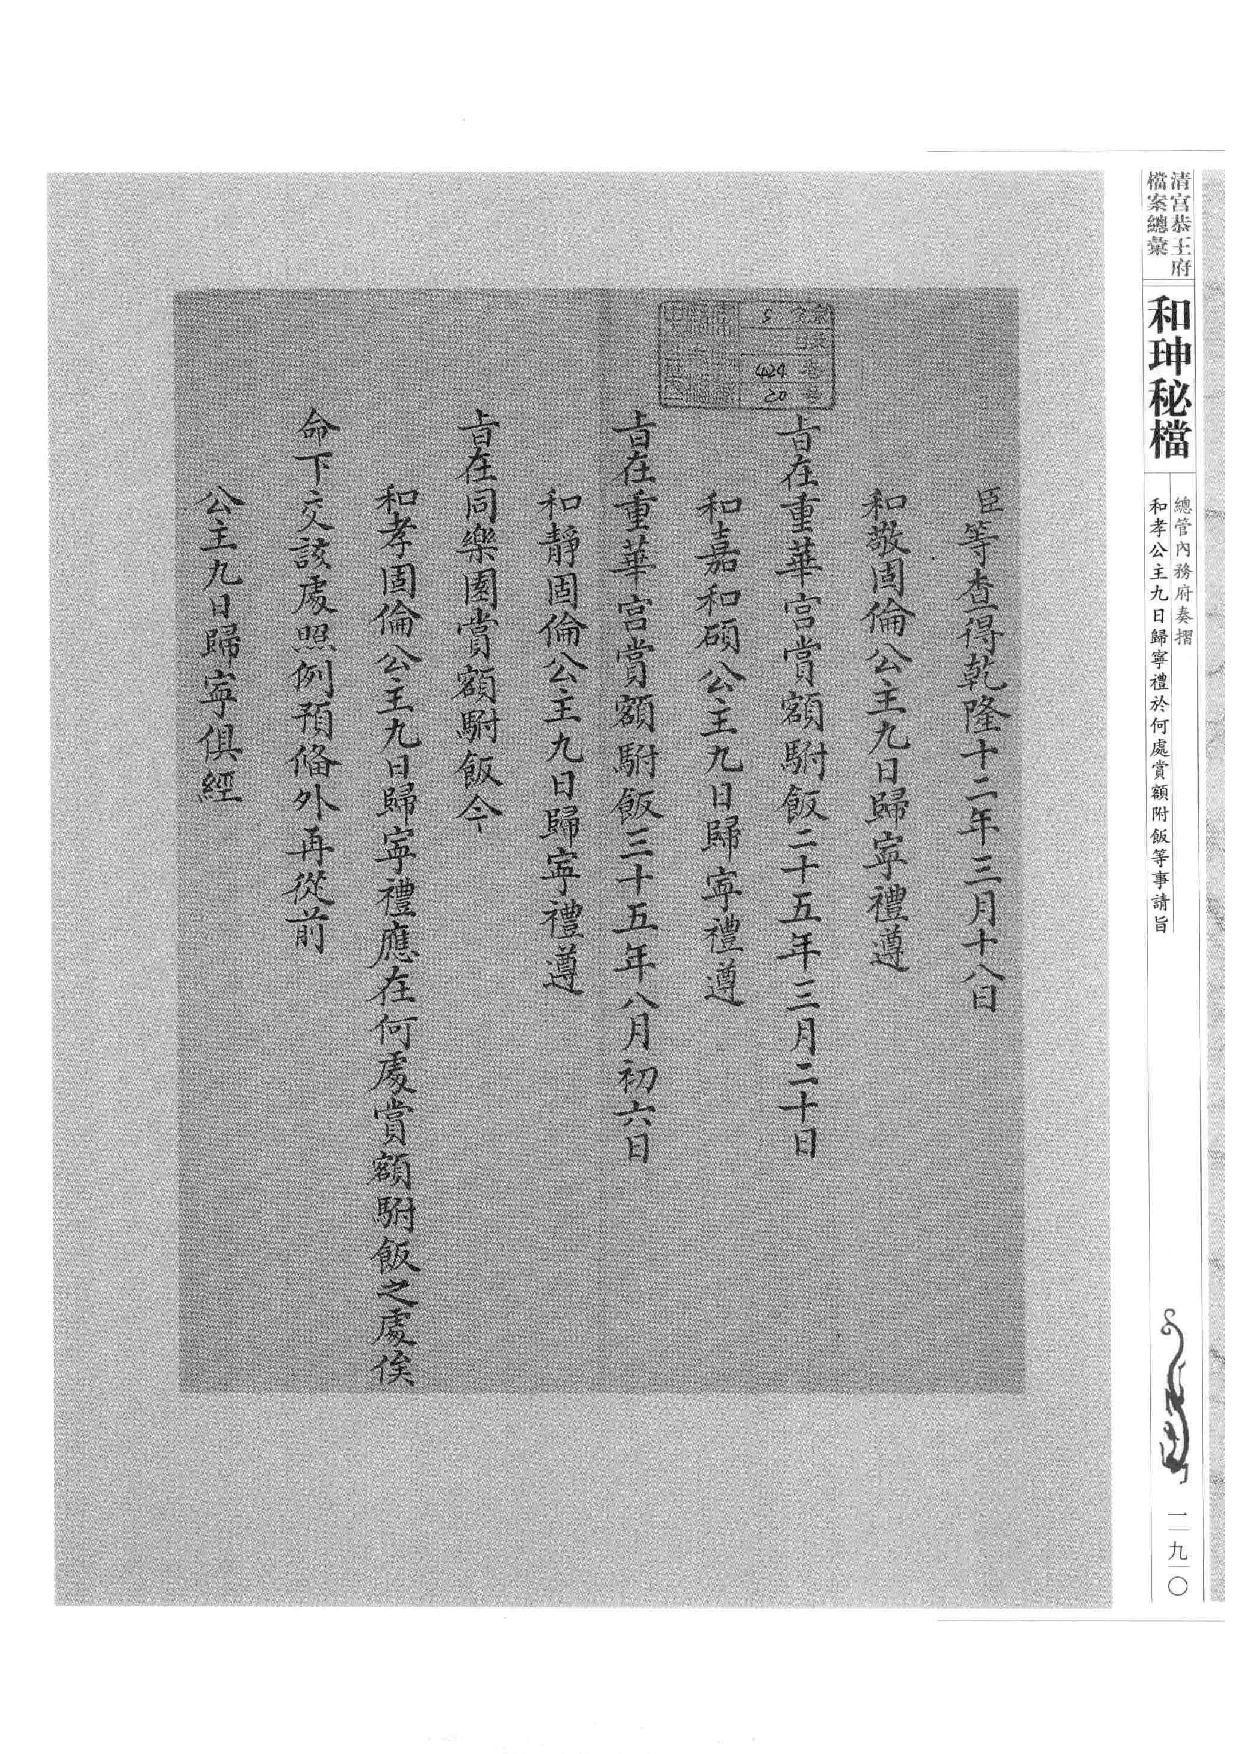 清宮恭王府
檔案總彙
和珅秘檔
總管內務府奏摺
和孝公主九日歸寧禮於何處賞額附飯等事請旨
一九〇
臣等查得乾隆十二年三月十八日
和敬固倫公主九日歸寧禮遵
旨在重華宮賞額駙飯二十五年三月二十日
和嘉和碩公主九日歸寧禮遵
旨在重華宮賞額駙飯三十五年八月初六日
和靜固倫公主九日歸寧禮遵
旨在同樂園賞額駙飯今
和孝固倫公主九日歸寧禮應在何處賞額駙飯之處俟
命下交該處照例預俻外再從前
公主九日歸寧俱經
5
424
20